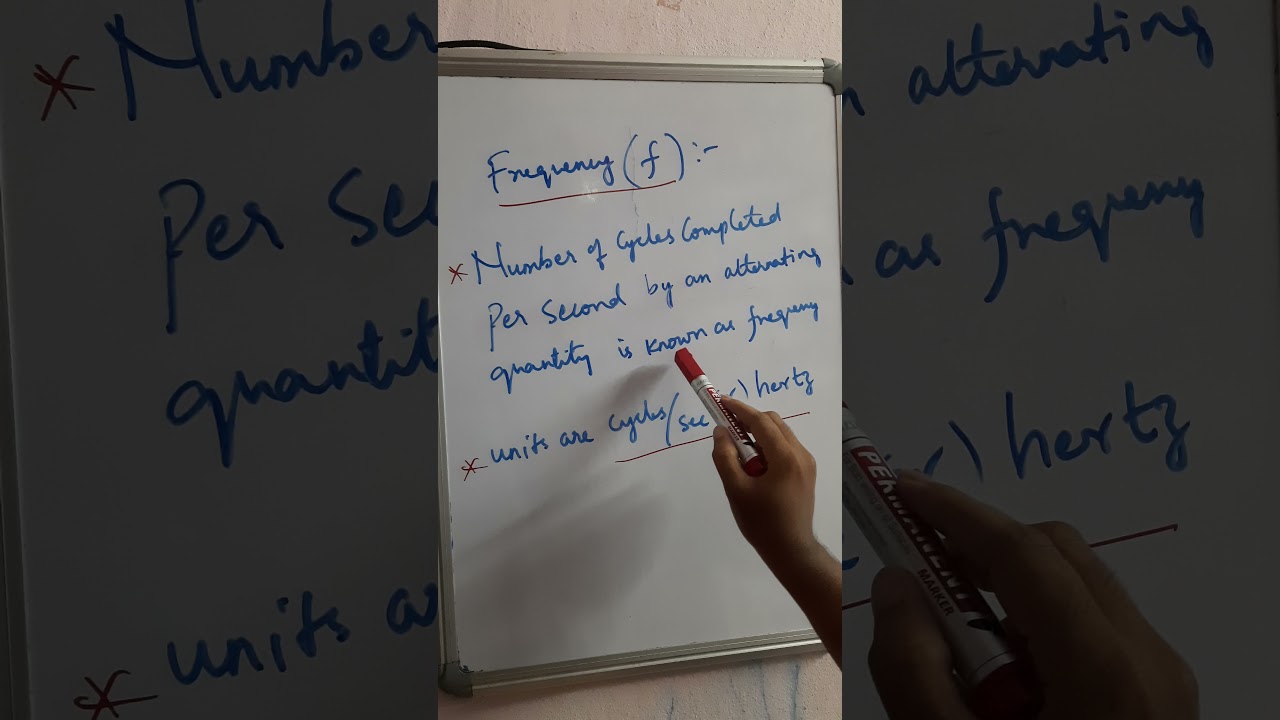 Frequency (f) :-
* Number of Cycles Completed
Per Second by an alternating
quantity is known as frequency
* units are cycles/sec () hertz
PERMANENT
MARKER